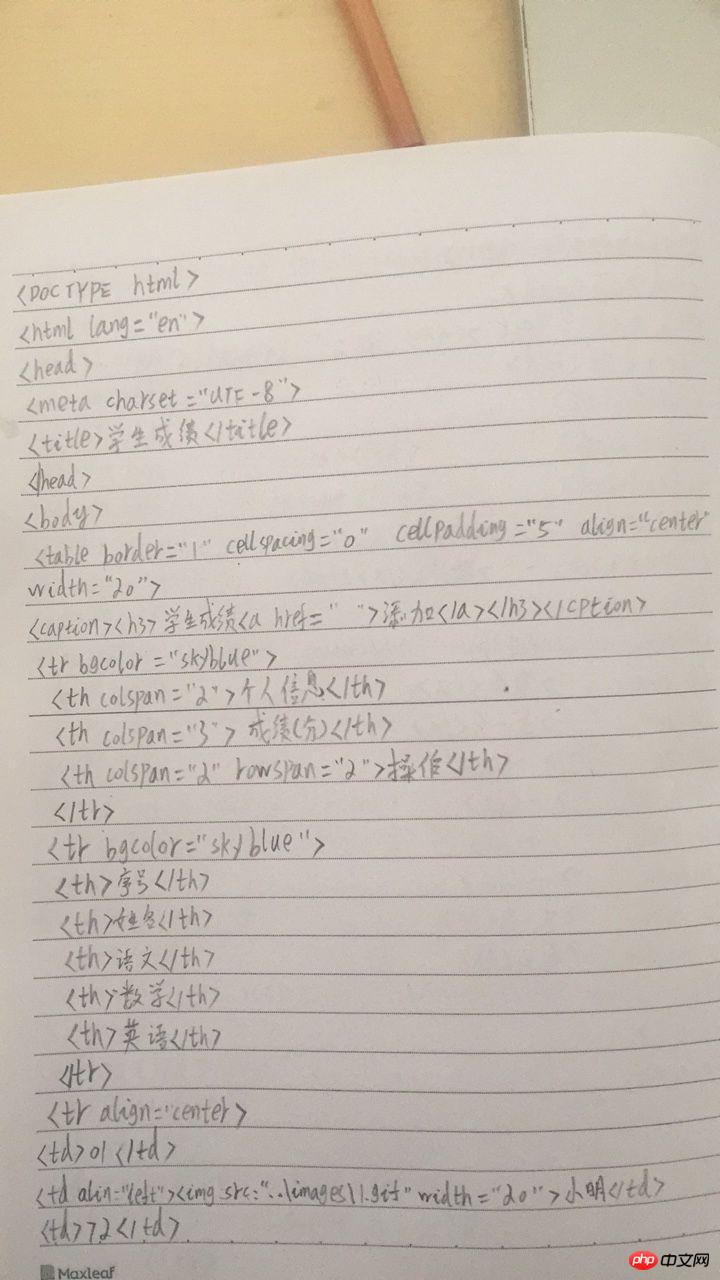 <DOCTYPE html>
<html lang="en">
<head>
<meta charset="UTF-8">
<title>学生成绩</title>
</head>
<body>
<table border="1" cellspacing="0" cellpadding="5" align="center"
width="20">
<caption><h3>学生成绩<a href=" ">添加</a></h3></cption>
<tr bgcolor="skyblue">
<th colspan="2">个人信息</th>
<th colspan="3">成绩(分)</th>
<th colspan="2" rowspan="2">操作</th>
</tr>
<tr bgcolor="skyblue">
<th>序号</th>
<th>姓名</th>
<th>语文</th>
<th>数学</th>
<th>英语</th>
</tr>
<tr align="center>
<td>01</td>
<td alin="left"><img src="..\images\1.git" width="20">小明</td>
<td>72</td>
Maxleaf
php 中文网